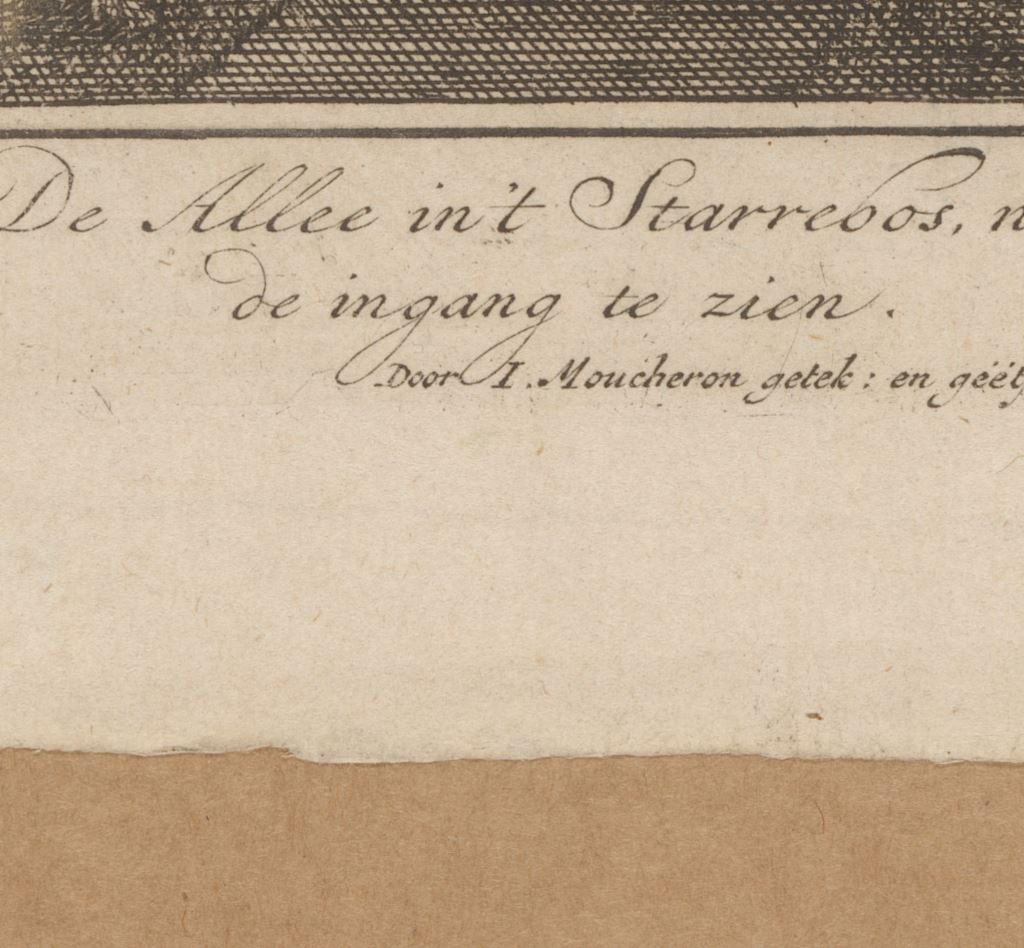 De Allee in't Starrebos, n
de ingang te zien.
Door I. Moucheron getek: en geët